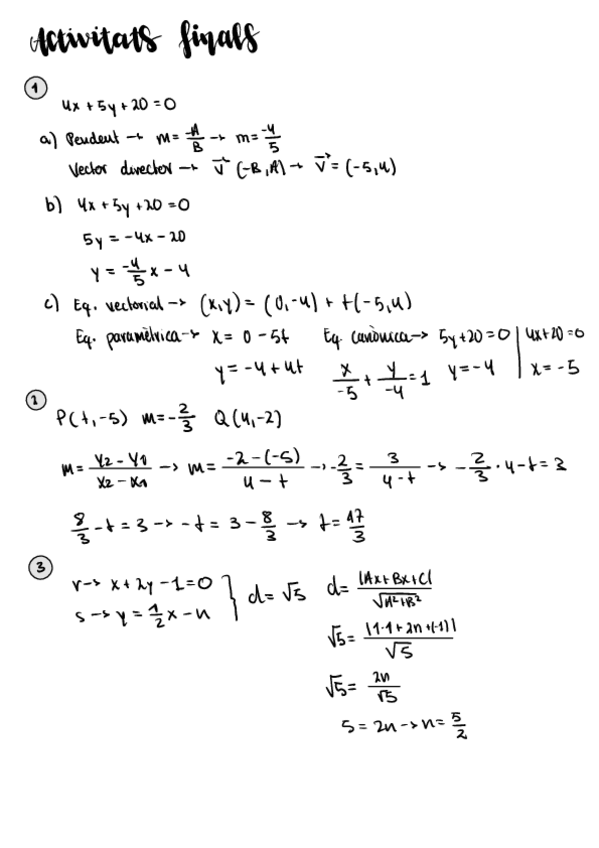 Activitats finals
1
4x + 5y + 20 = 0
a) Pendent → m = -A/B → m = -4/5
Vector director → v⃗ (-B, A) → v⃗ = (-5, 4)
b) 4x + 5y + 20 = 0
5y = -4x - 20
y = -4/5 x - 4
c) Eq. vectorial → (x,y) = (0,-4) + t(-5,4)
Eq. paramètrica → x = 0 - 5t
y = -4 + 4t
Eq. canònica → 5y + 20 = 0 | 4x + 20 = 0
x/-5 + y/-4 = 1 y = -4 | x = -5
2
P(t, -5) m = -2/3 Q(4, -2)
m = y2 - y1 / x2 - x1 → m = -2 - (-5) / 4 - t → -2/3 = 3 / 4 - t → -2/3 · 4 - t = 3
8/3 - t = 3 → -t = 3 - 8/3 → t = 17/3
3
r → x + 2y - 1 = 0
s → y = 1/2 x - n
} d = √5
d = |Ax + Bx + C| / √A² + B²
√5 = |1·1 + 2n + (-1)| / √5
√5 = 2n / √5
5 = 2n → n = 5/2